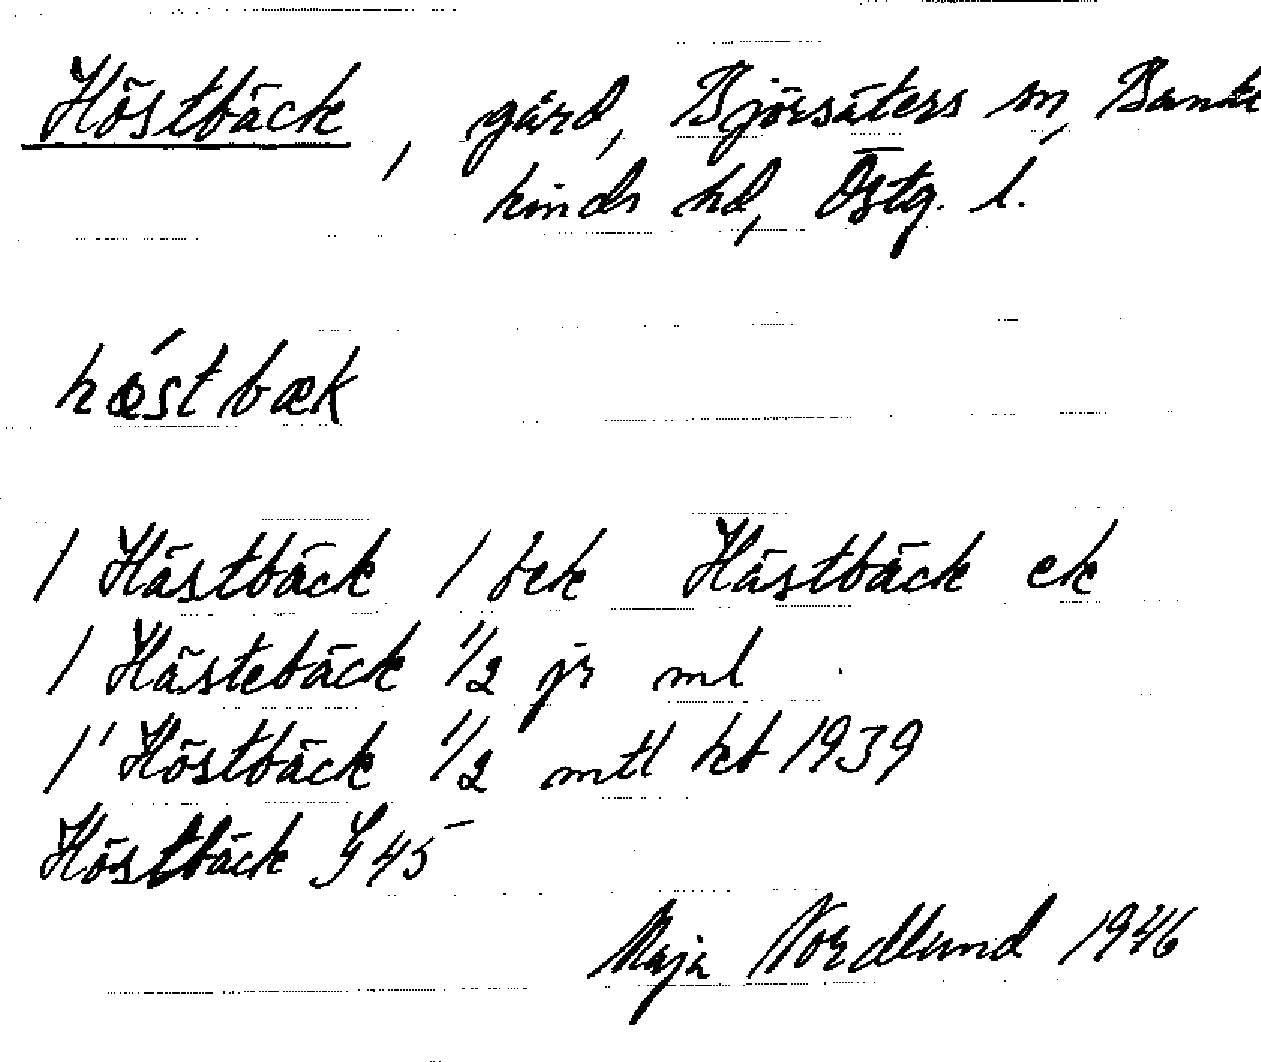 Höstbäck, gård, Björsäters sn, Bankekinds hd, Östg. l.
hǿstbæk
1 Hästbäck 1 bck Hästbäck ek
1 Hästebäck 1/2 jr ml
1' Höstbäck 1/2 mtl kb 1939
Höstbäck G 45
Maja Nordlund 1946